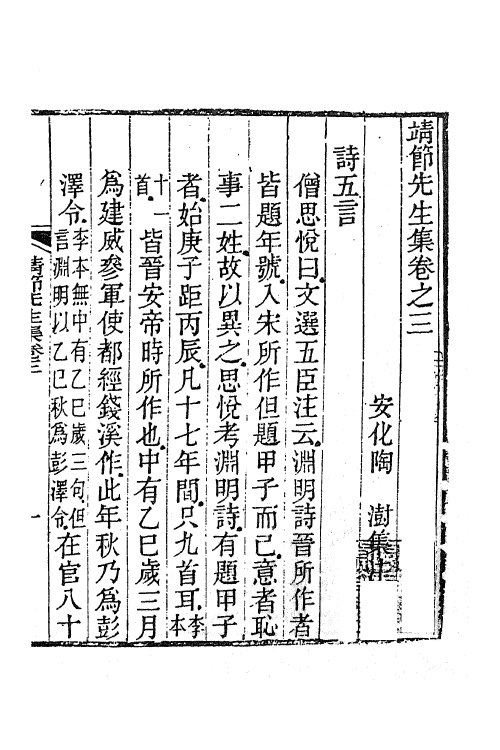 靖節先生集卷之三
安化陶 澍集注
詩五言
僧思悅曰文選五臣注云淵明詩晉所作者
皆題年號入宋所作但題甲子而已意者恥
事二姓故以異之思悅考淵明詩有題甲子
者始庚子距丙辰凡十七年間只九首耳李本
十一首皆晉安帝時所作也中有乙巳歲三月
為建威參軍使都經錢溪作此年秋乃為彭
澤令李本無中有乙巳歲三句但言淵明以乙巳秋為彭澤令在官八十
靖節先生集卷三
一